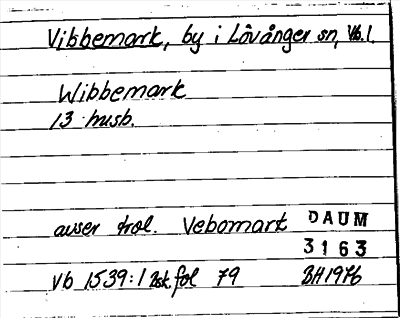 Vibbemark, by i Lövånger sn, Vb.l.
Wibbemark
13 husb.
avser trol. Vebomart DAUM
3163
Vb 1539:1 Bsk fol 79 BH1976